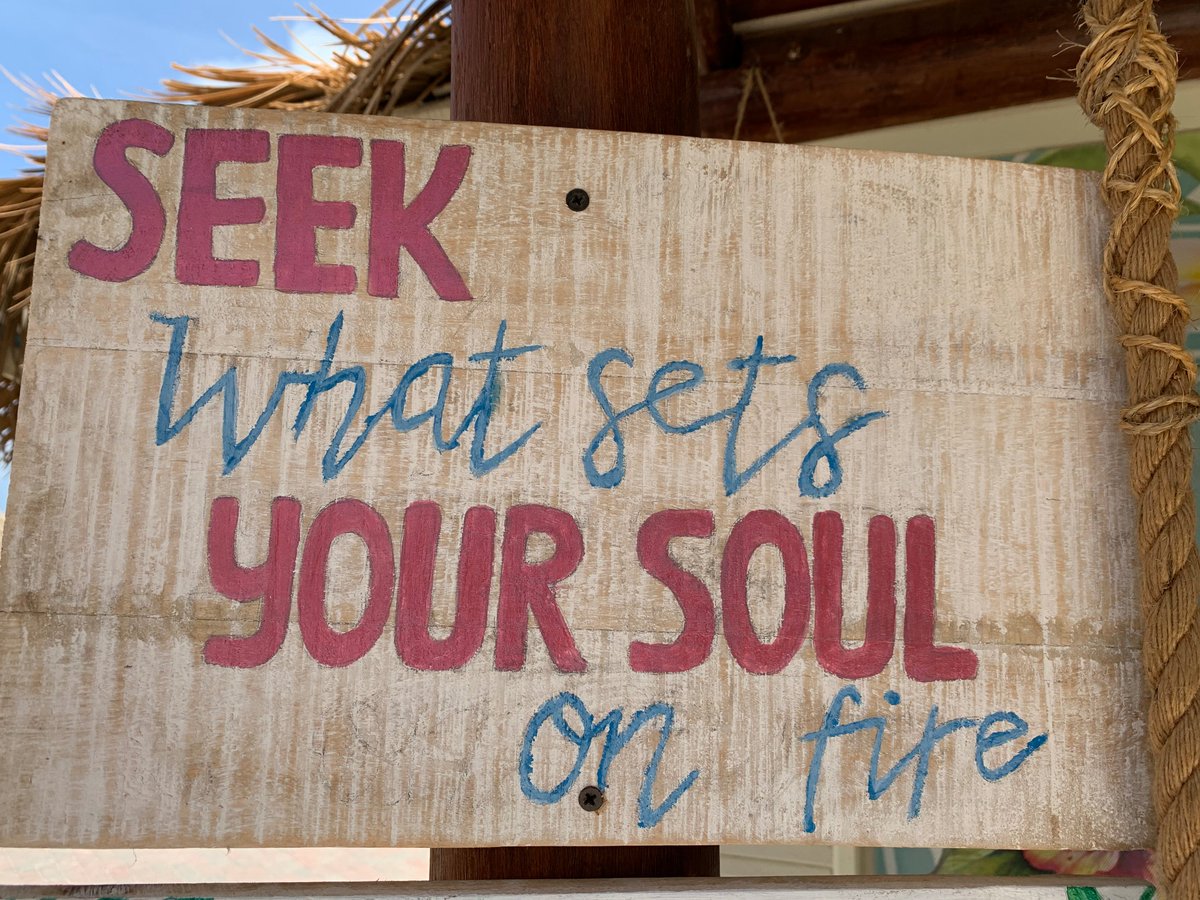 SEEK
What sets
YOUR SOUL
on fire